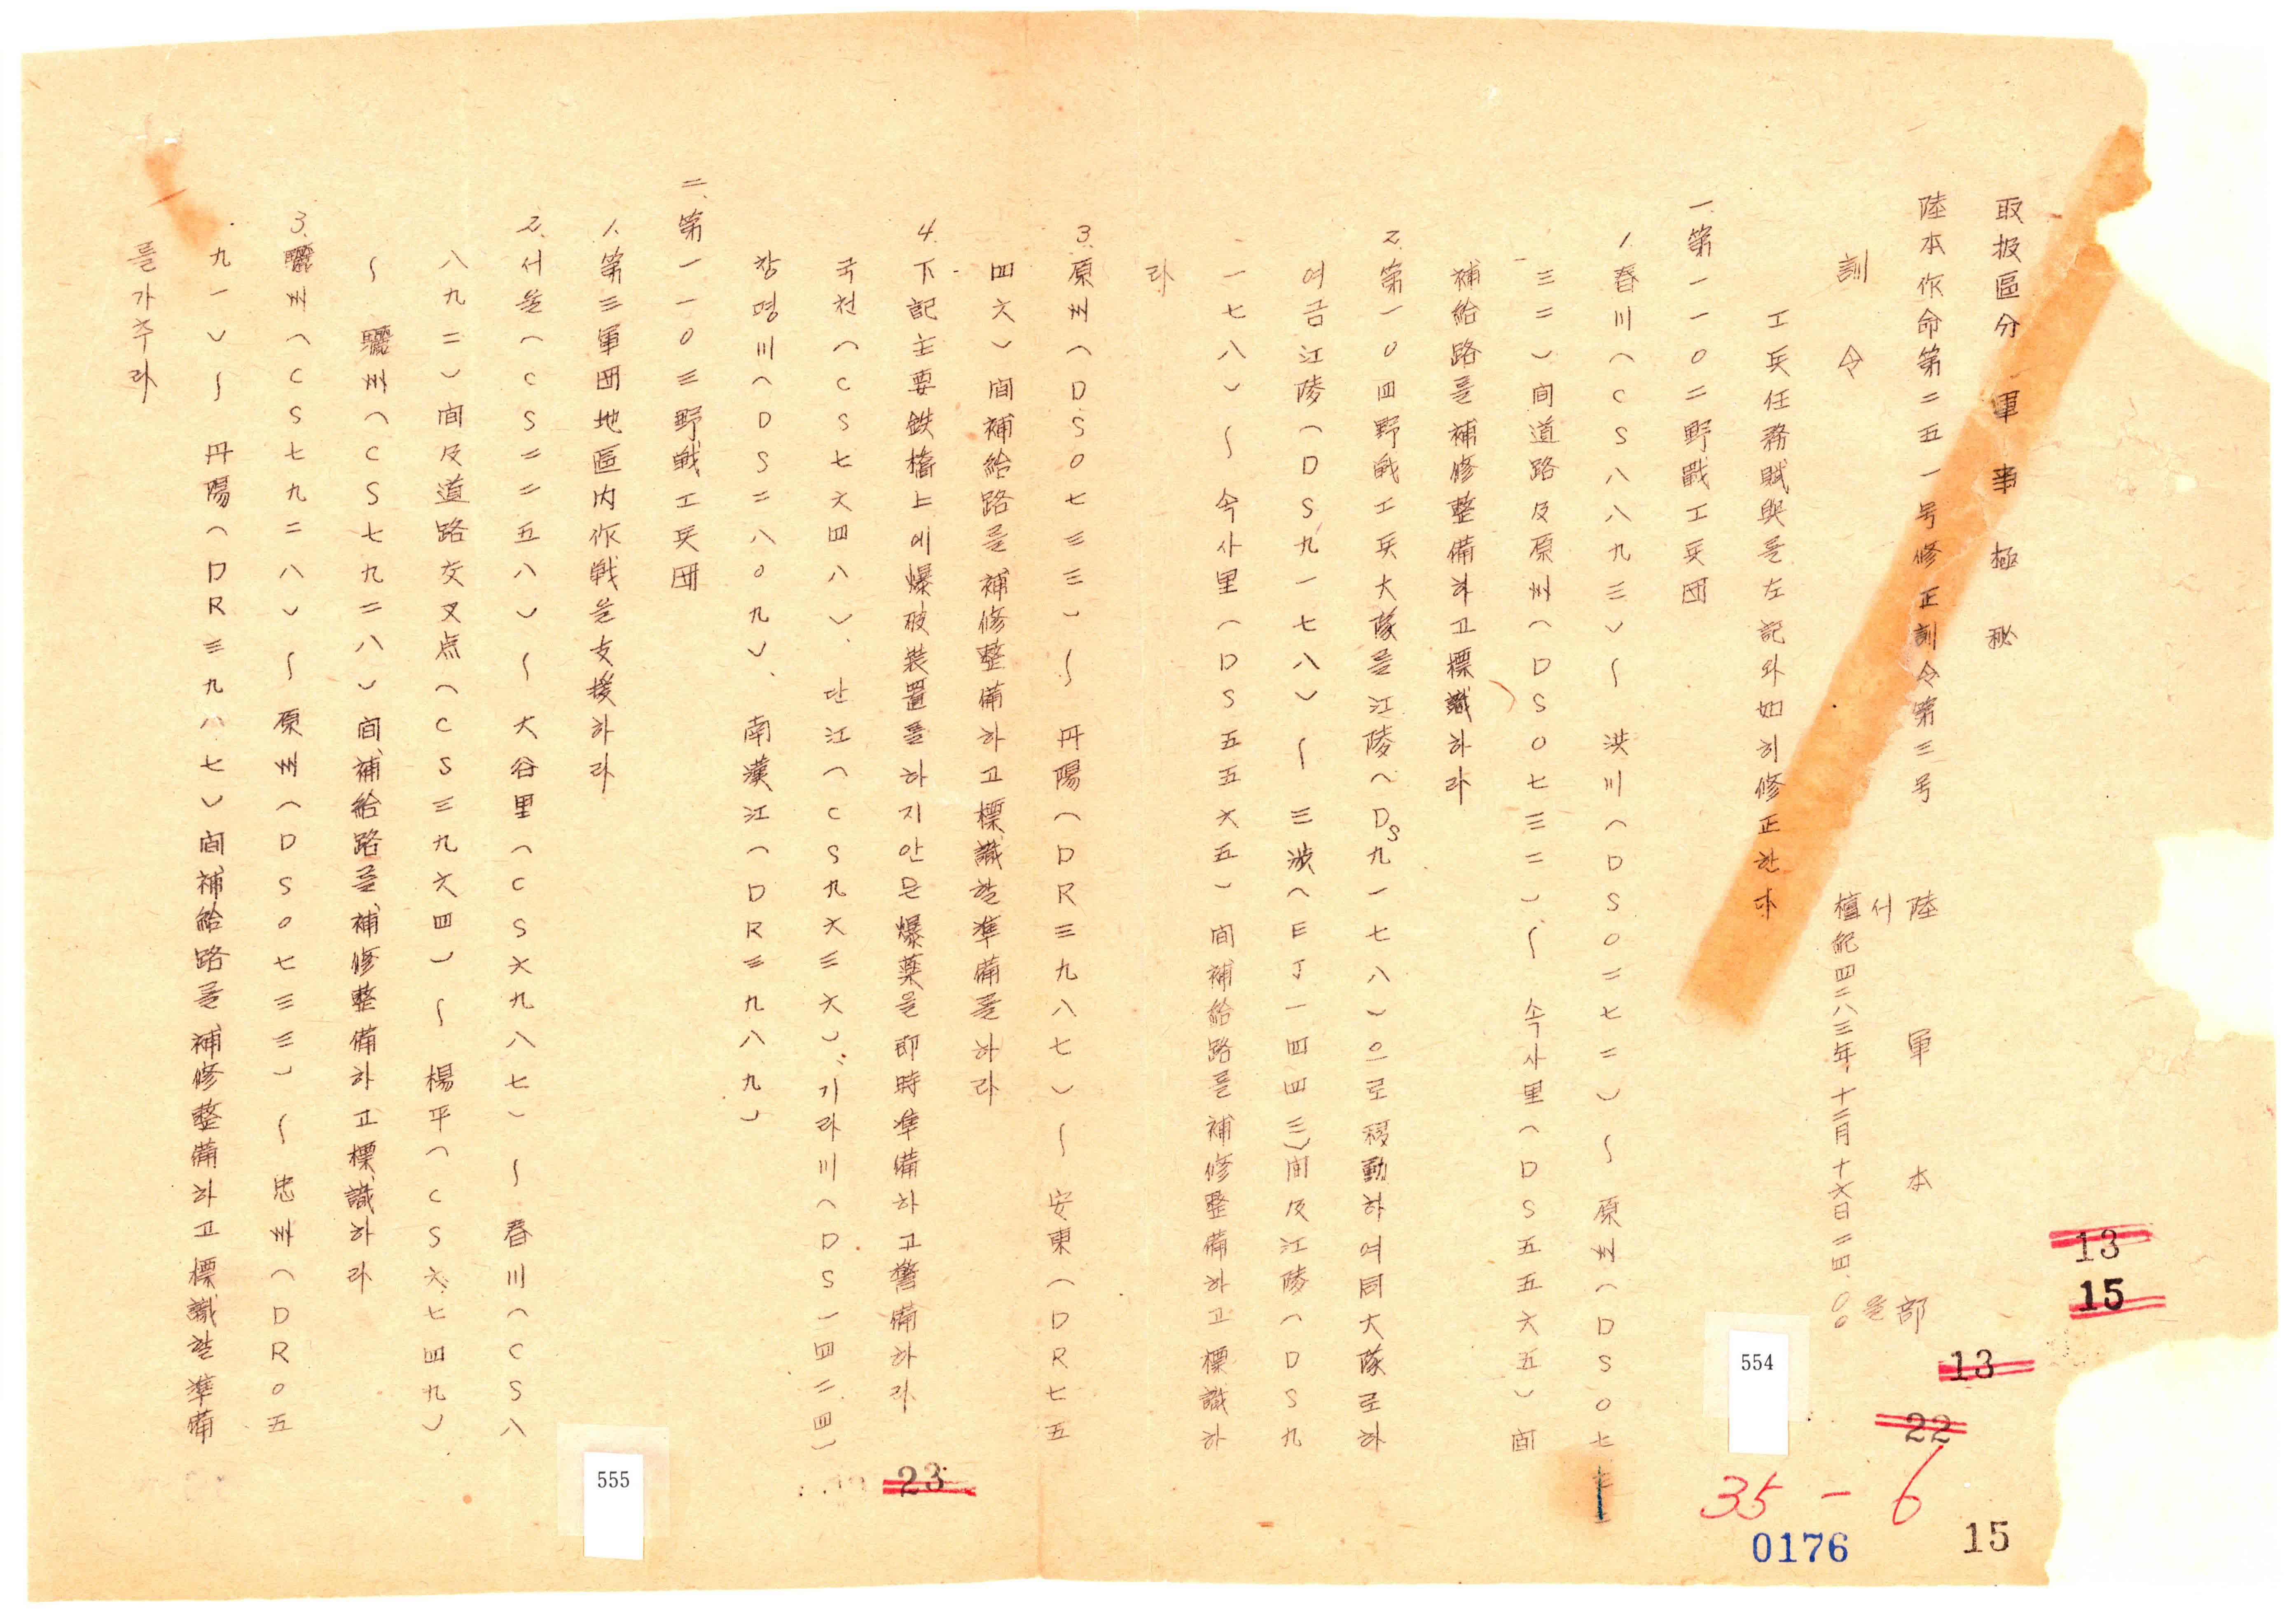 取扱區分 軍事極秘
陸本作命第二五一号修正訓令第三号
陸軍本部
서울
檀紀四二八三年十二月十六日二四.〇〇
訓令
工兵任務賦與를左記와如히修正한다
一.第一一〇二野戰工兵団
1.春川(CS八八九三)~洪川(DS〇二七二)~原州(DS〇七三
三二)間道路及原州(DS〇七三二)~속사里(DS五五六五)間
補給路를補修整備하고標識하라
2.第一〇四野戰工兵大隊를江陵(DS九一七八)으로移動하여同大隊로하
여금江陵(DS九一七八)~三波(EJ一四四三)間及江陵(DS九
一七八)~속사里(DS五五六五)間補給路를補修整備하고標識하
라
3.原州(DS〇七三三)~丹陽(DR三九八七)~安東(DR七五
四六)間補給路를補修整備하고標識할準備를하라
4.下記主要鉄橋上에爆破裝置를하지안은爆薬을即時準備하고警備하라
국천(CS七六四八)、단江(CS九六三六)、기라川(DS一四二四)
창명川(DS二八〇九)、南漢江(DR三九八九)
二.第一一〇三野戰工兵団
1.第三軍団地區内作戦을支援하라
2.서울(CS二二五八)~大谷里(CS六九八七)~春川(CS八
八九二)間及道路交叉点(CS三九六四)~楊平(CS六七四九)
~驪州(CS七九二八)間補給路를補修整備하고標識하라
3.驪州(CS七九二八)~原州(DS〇七三三)~忠州(DR〇五
九一)~丹陽(DR三九八七)間補給路를補修整備하고標識할準備
를가추라
13
15
13
22
23
554
555
35-6
0176
15